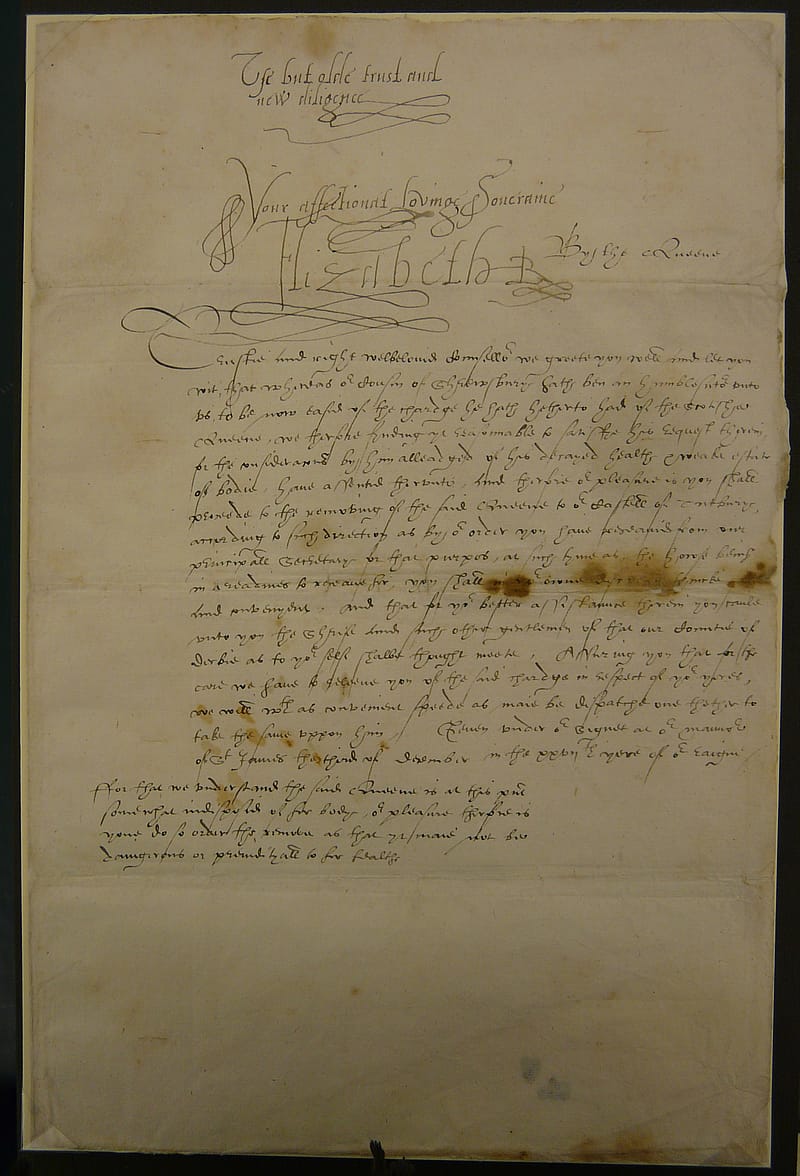 Use but olde trust and
new diligence
Your affectionat loving Soueraine
Elizabeth R
By the Queene
Trustie and right welbeloved Counsellor we greete you well and let you
wit, that whereas or Cousin of Shrewsbury hath ben an humble suter unto
us, to be now eased of the chardge he hath hetherto had of the Scotishe
Queene, we therfore finding yt reasonnable to satisfie his request therin,
for the consideracons by him alleadged of his decayed health & weake estat
of bodie, have assented therunto, And therfore or pleasure is you shall
procede to the removing of the said Queene to or Castell of Tutbury,
according to such direction as by or order you have receaved from our
principall Secretary for that purpos, at such tyme as the howse being
in a readines to receave her, you shall in yor owne discrecon thincke
and convenyent. And that for yor better assistaunce therin you caule
unto you the Shrief and such other gentlemen of that our Countie of
Derbie as to yor self shalbe thought meete, Assuring you that for the
care we have to releeve you of the said chardge in respect of yor yeres,
we will wth as convenient speede as maie be dispatche one thether to
take the same uppon him. Yeven under or Signet at or mannor
of St James the third of December in the xxvijth yere of or raigne
ffor that we understand the said Queene is at this pnt
somewhat indisposed of her body, or pleasure therfore is
youe do so order the remove as that yt maie not be
daungerous or preiudiciall to her health